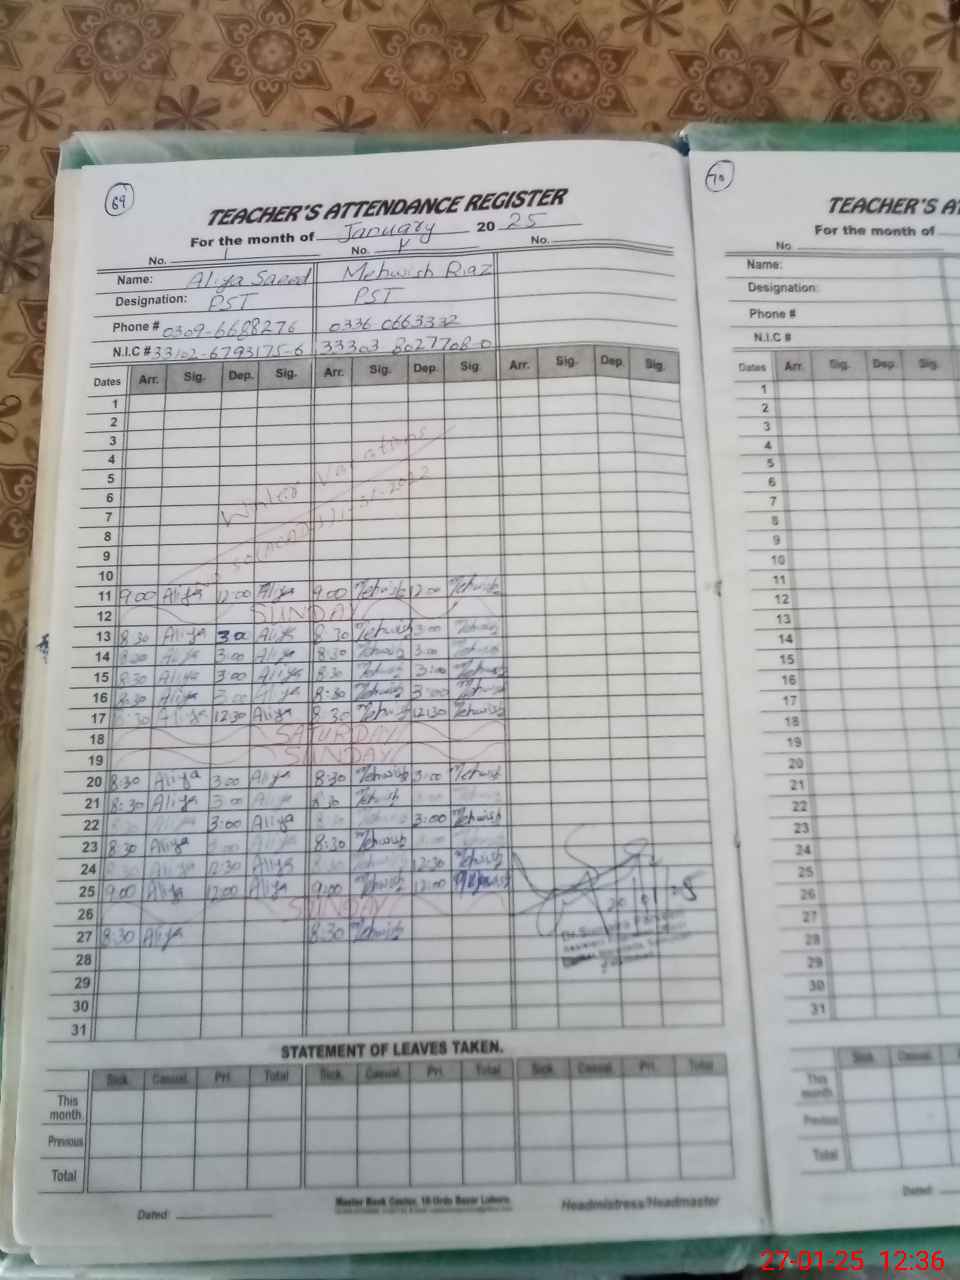 69
TEACHER'S ATTENDANCE REGISTER
For the month of January 2025
No. 1 No. No.
Name: Aliya Saeed Mehwish Riaz
Designation: PST PST
Phone # 0309-6688276 0336 0663332
N.I.C # 33102-6793175-6 33303 8027708-0
Dates Arr. Sig. Dep. Sig. Arr. Sig. Dep. Sig. Arr. Sig. Dep. Sig.
1
2
3
4
5
6
7
8
9
10
Winter Vacations
11 9:00 Aliya 12:00 Aliya 9:00 Mehwish 12:00 Mehwish
12 SUNDAY
13 8:30 Aliya 3:00 Aliya 8:30 Mehwish 3:00 Mehwish
14 8:30 Aliya 3:00 Aliya 8:30 Mehwish 3:00 Mehwish
15 8:30 Aliya 3:00 Aliya 8:30 Mehwish 3:00 Mehwish
16 8:30 Aliya 3:00 Aliya 8:30 Mehwish 3:00 Mehwish
17 8:30 Aliya 12:30 Aliya 8:30 Mehwish 12:30 Mehwish
18 SATURDAY
19 SUNDAY
20 8:30 Aliya 3:00 Aliya 8:30 Mehwish 3:00 Mehwish
21 8:30 Aliya 3:00 Aliya 8:30 Mehwish
22 3:00 Aliya 3:00 Mehwish
23 8:30 Aliya 8:30 Mehwish
24 8:30 Aliya 12:30 Aliya 12:30 Mehwish
25 9:00 Aliya 12:00 Aliya 9:00 Mehwish 12:00 Mehwish
26 SUNDAY
27 8:30 Aliya 8:30 Mehwish
28
29
30
31
STATEMENT OF LEAVES TAKEN.
Sick. Casual. Pri. Total Sick. Casual. Pri. Total Sick. Casual. Pri. Total
This month.
Previous
Total
Master Book Center, 18-Urdu Bazar Lahore.
Dated: Headmistress/Headmaster
70
TEACHER'S AT
For the month of
No.
Name:
Designation:
Phone #
N.I.C #
Dates Arr. Sig. Dep. Sig.
1
2
3
4
5
6
7
8
9
10
11
12
13
14
15
16
17
18
19
20
21
22
23
24
25
26
27
28
29
30
31
Sick. Casual.
This month.
Previous
Total
Dated:
27-01-25 12:36